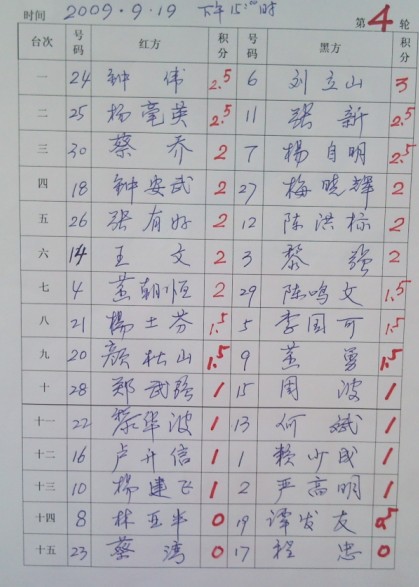 时间 2009.9.19 下午15:00时 第4轮
台次 号码 红方 积分 号码 黑方 积分
一 24 钟伟 2.5 6 刘立山 3
二 25 杨亮英 2.5 11 张新 2.5
三 30 蔡乔 2 7 楊自明 2.5
四 18 钟安武 2 27 梅晓辉 2
五 26 张有好 2 12 陈洪标 2
六 14 王文 2 3 黎强 2
七 4 朝恒 2 29 陈鸣文 1.5
八 21 楊士芬 1.5 5 李国可 1.5
九 20 颜松山 1.5 9 勇 1.5
十 28 郑武强 1 15 周波 1
十一 22 华波 1 13 何斌 1
十二 16 卢升信 1 1 赖少民 1
十三 10 楊建飞 1 2 严高明 1
十四 8 林亚 0 19 谭发友 0.5
十五 23 蔡湾 0 17 程忠 0